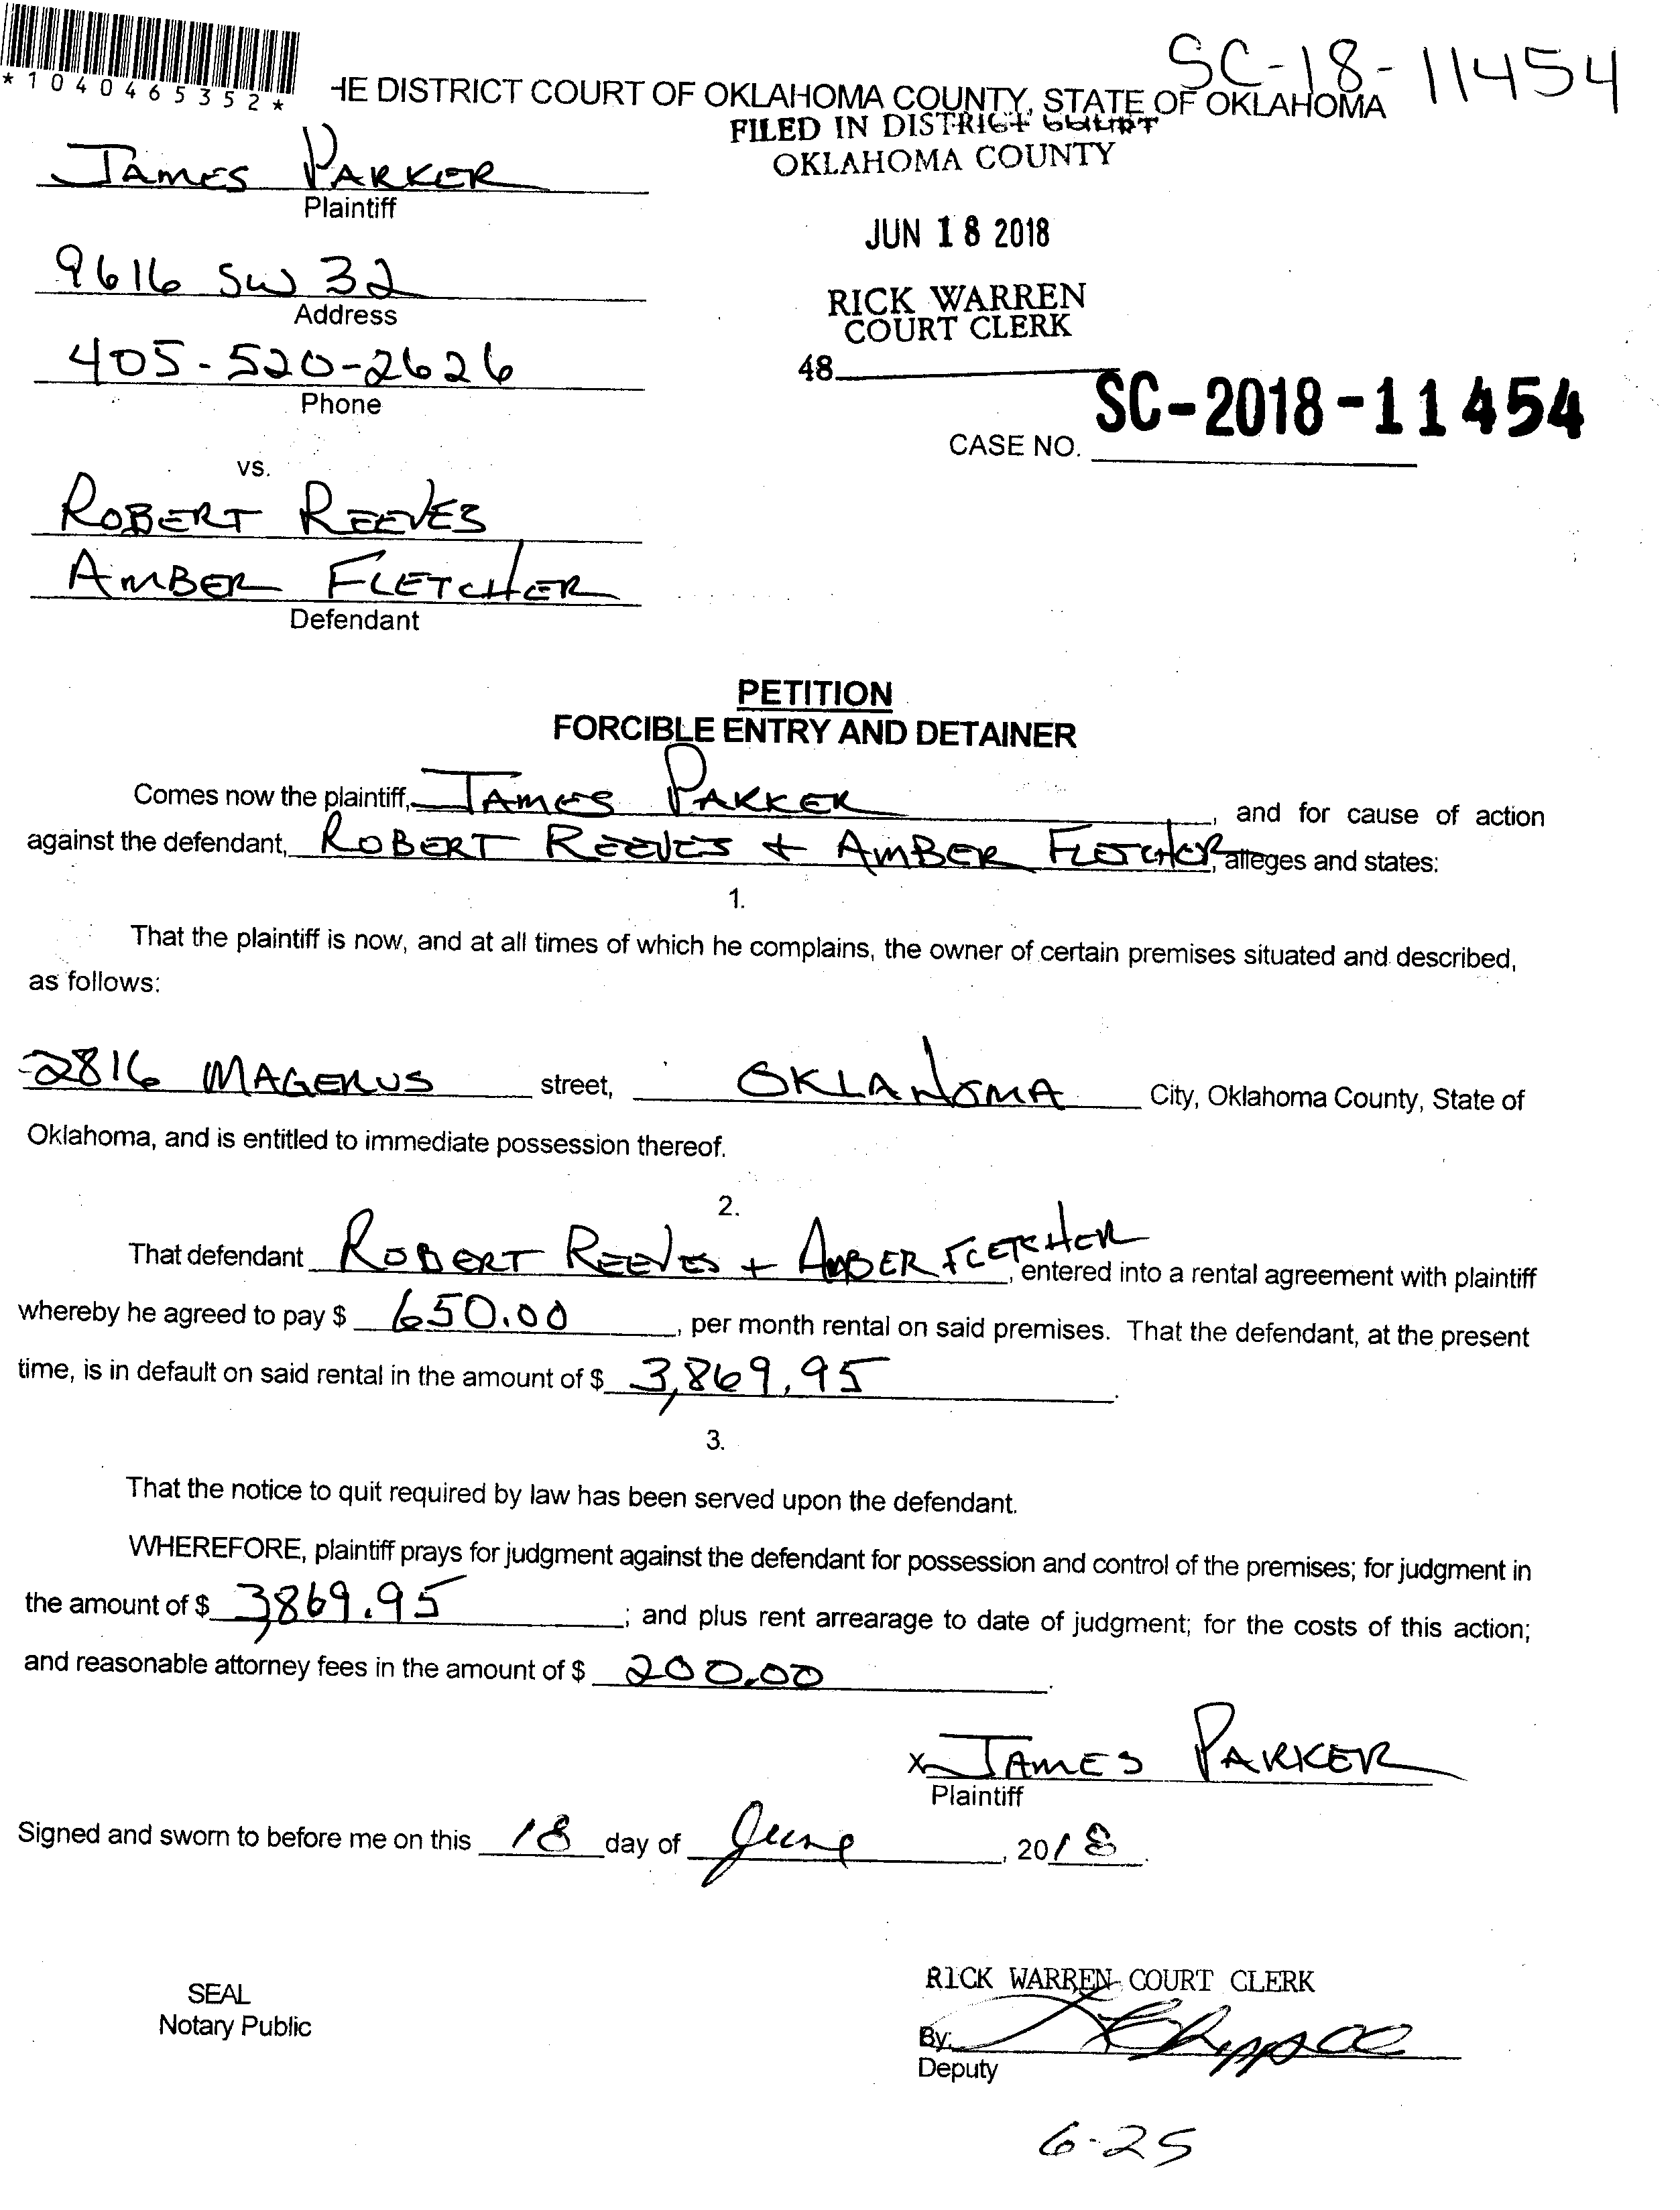 SC-18-11454
*1040465352*
HE DISTRICT COURT OF OKLAHOMA COUNTY, STATE OF OKLAHOMA
FILED IN DISTRICT COURT
OKLAHOMA COUNTY
JAMES PARKER
Plaintiff
JUN 18 2018
9616 SW 32
Address
RICK WARREN
COURT CLERK
405-520-2626
Phone
48
SC-2018-11454
CASE NO.
vs.
ROBERT REEVES
AMBER FLETCHER
Defendant
PETITION
FORCIBLE ENTRY AND DETAINER
Comes now the plaintiff, JAMES PARKER, and for cause of action
against the defendant, ROBERT REEVES + AMBER FLETCHER, alleges and states:
1.
That the plaintiff is now, and at all times of which he complains, the owner of certain premises situated and described,
as follows:
2816 MAGERUS street, OKLAHOMA City, Oklahoma County, State of
Oklahoma, and is entitled to immediate possession thereof.
2.
That defendant ROBERT REEVES + AMBER FLETCHER, entered into a rental agreement with plaintiff
whereby he agreed to pay $ 650.00, per month rental on said premises. That the defendant, at the present
time, is in default on said rental in the amount of $ 3,869.95.
3.
That the notice to quit required by law has been served upon the defendant.
WHEREFORE, plaintiff prays for judgment against the defendant for possession and control of the premises; for judgment in
the amount of $ 3869.95; and plus rent arrearage to date of judgment; for the costs of this action;
and reasonable attorney fees in the amount of $ 200.00.
X JAMES PARKER
Plaintiff
Signed and sworn to before me on this 18 day of June, 2018.
RICK WARREN COURT CLERK
SEAL
Notary Public
By:
Deputy
6-25